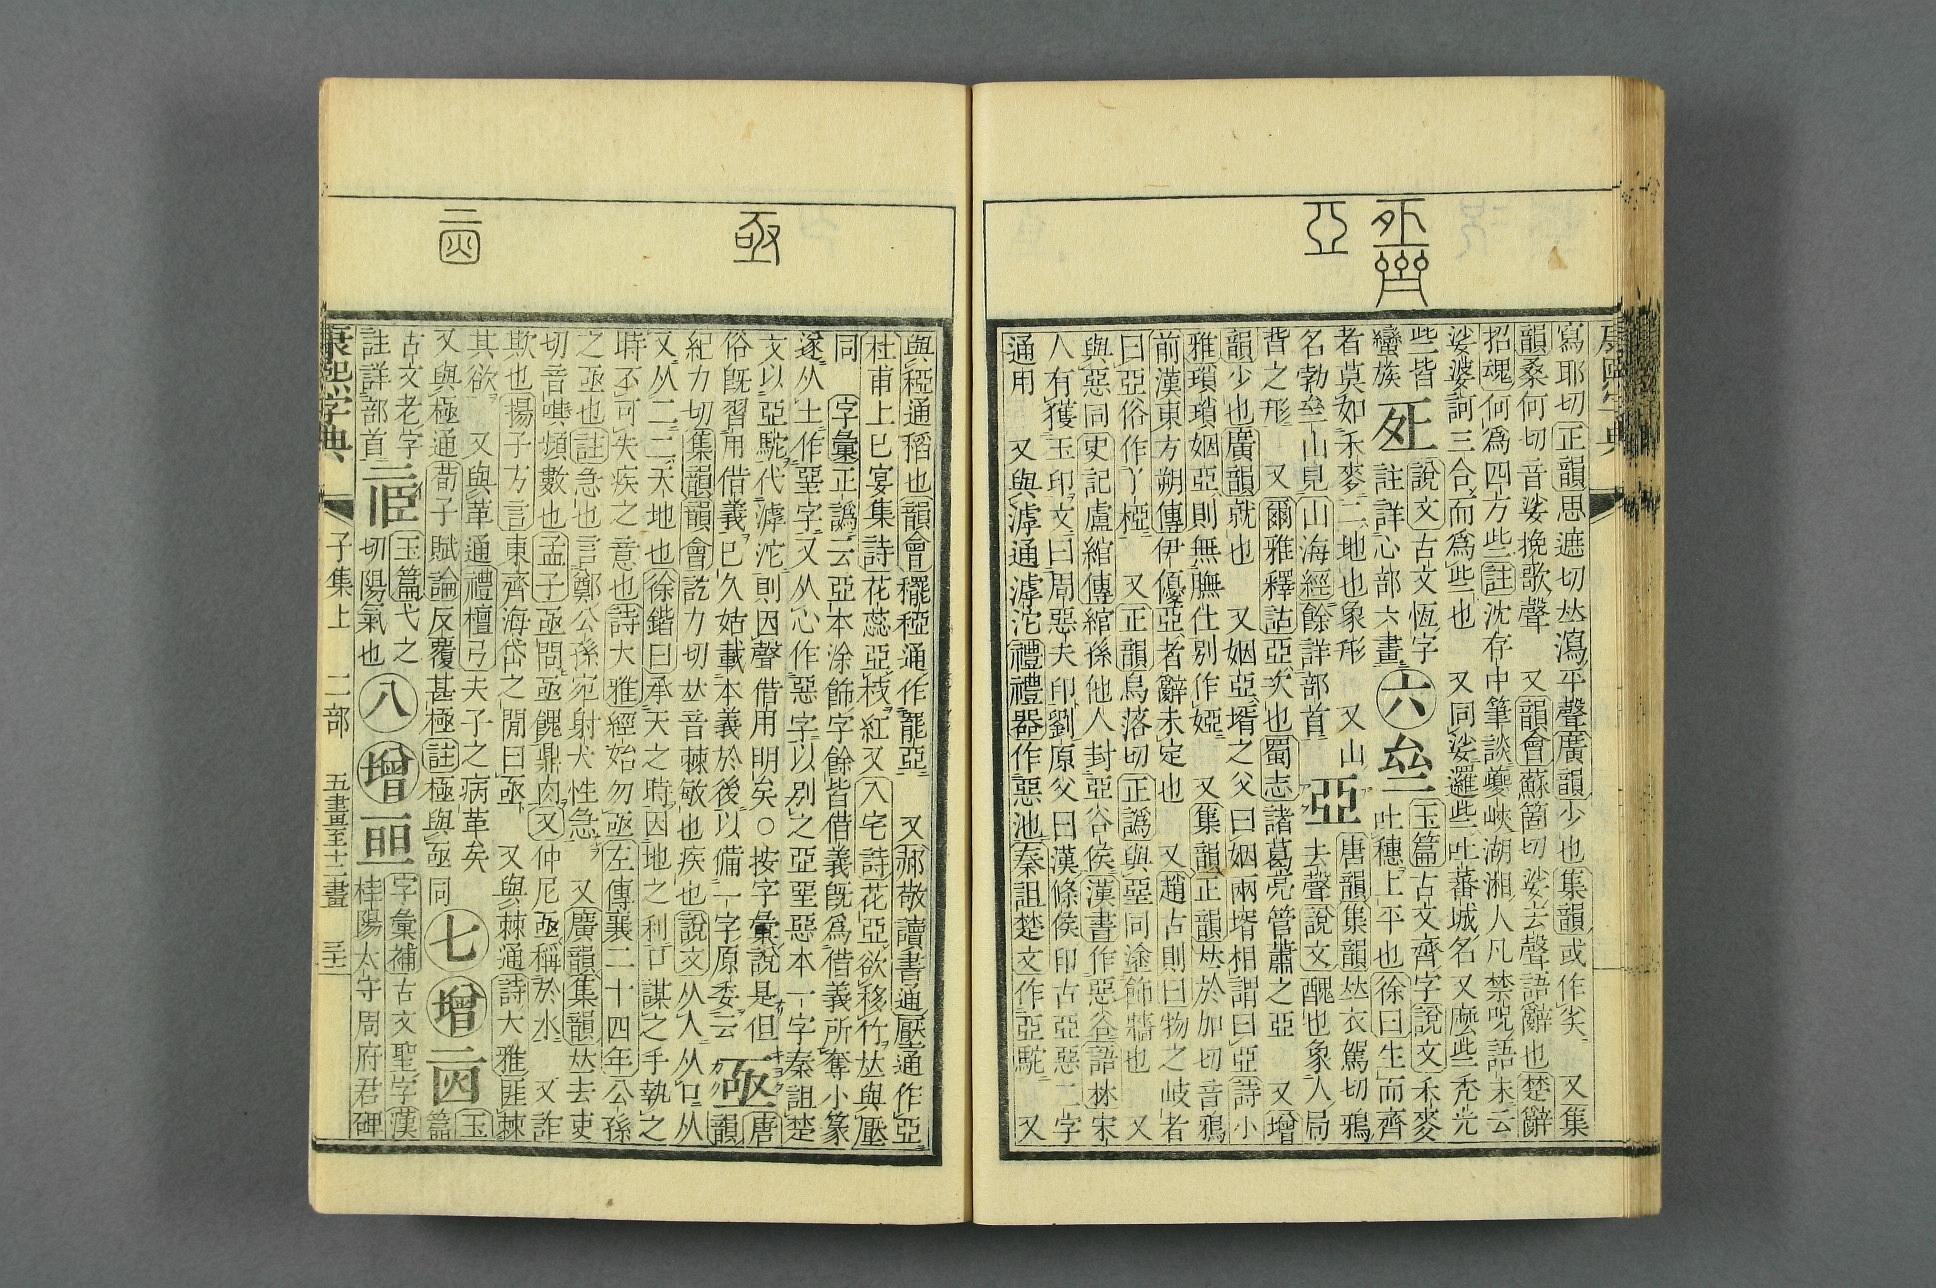 亞
寫耶切正韻思遮切𠀤瀉平聲廣韻少也集韻或作㱔 又集
韻桑何切音娑挽歌聲 又韻會蘇箇切娑去聲語辭也楚辭
招魂何爲四方些註沈存中筆談夔峽湖湘人凡禁呪語末云
娑婆訶三合而爲些也 又同娑邏些吐蕃城名又麽些禿光
些皆
蠻族
說文古文恆字
註詳心部六畫
六
玉篇古文齊字說文禾麥
吐穗上平也徐曰生而齊
者莫如禾麥二地也象形 又山
名勃亝山見山海經餘詳部首
亞
唐韻集韻𠀤衣駕切鴉
去聲說文醜也象人局
背之形 又爾雅釋詁亞次也蜀志諸葛亮管蕭之亞 又增
韻少也廣韻就也 又姻亞壻之父曰姻兩壻相謂曰亞詩小
雅瑣瑣姻亞則無膴仕別作婭 又集韻正韻𠀤於加切音鴉
前漢東方朔傳伊優亞者辭未定也 又趙古則曰物之岐者
曰亞俗作丫椏 又正韻烏落切正譌與惡同塗飾牆也 又
與惡同史記盧綰傳綰孫他人封亞谷侯漢書作惡谷語林宋
人有獲玉印文曰周惡夫印劉原父曰漢條侯印古亞惡二字
通用 又與滹通滹沱禮禮器作惡池秦詛楚文作亞駝 又
亟
與稏通稻也韻會䆉稏通作罷亞 又郝敬讀書通壓通作亞
杜甫上巳宴集詩花蕊亞枝紅又入宅詩花亞欲移竹𠀤與壓
同 字彙正譌云亞本涂飾字餘皆借義旣爲借義所奪小篆
遂从土作堊字又从心作惡字以別之亞堊惡本一字秦詛楚
文以亞駝代滹沱則因聲借用明矣○按字彙說是但
俗旣習用借義已久姑載本義於後以備一字原委云
亟
唐韻
紀力切集韻韻會訖力切𠀤音棘敏也疾也說文从人从口从
又从二二天地也徐鍇曰承天之時因地之利口謀之手執之
時不可失疾之意也詩大雅經始勿亟左傳襄二十四年公孫
之亟也註急也言鄭公孫宛射犬性急 又廣韻集韻𠀤去吏
切音唭頻數也孟子亟問亟餽鼎肉又仲尼亟稱於水 又詐
欺也揚子方言東齊海岱之閒曰亟 又與棘通詩大雅匪棘
其欲 又與革通禮檀弓夫子之病革矣
又與極通荀子賦論反覆甚極註極與亟同
七
增
玉篇
古文老字
註詳部首
玉篇弋之
切陽氣也
八
增
字彙補古文聖字漢
桂陽太守周府君碑
康熙字典 子集上 二部 五畫至十二畫 三十二